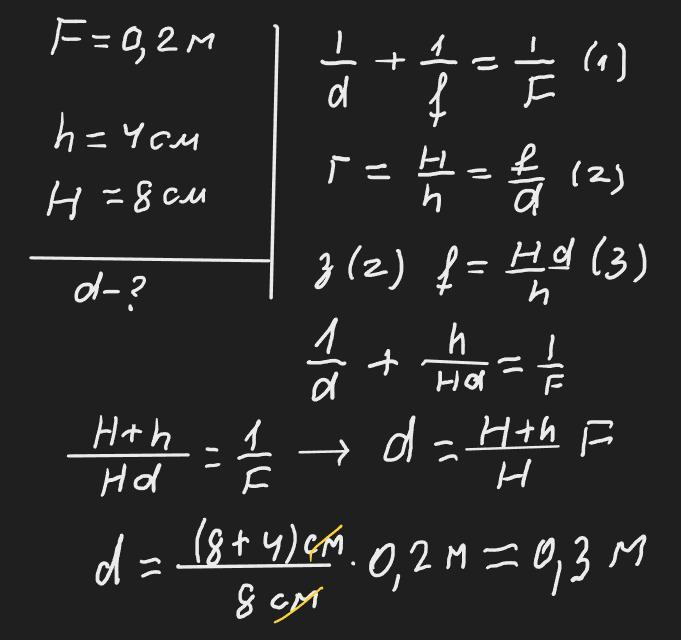 F = 0,2 м
h = 4 см
H = 8 см
d - ?
1/d + 1/f = 1/F (1)
Г = H/h = f/d (2)
з (2) f = Hd/h (3)
1/d + h/Hd = 1/F
H+h/Hd = 1/F → d = H+h/H F
d = (8+4)см/8 см · 0,2 м = 0,3 м